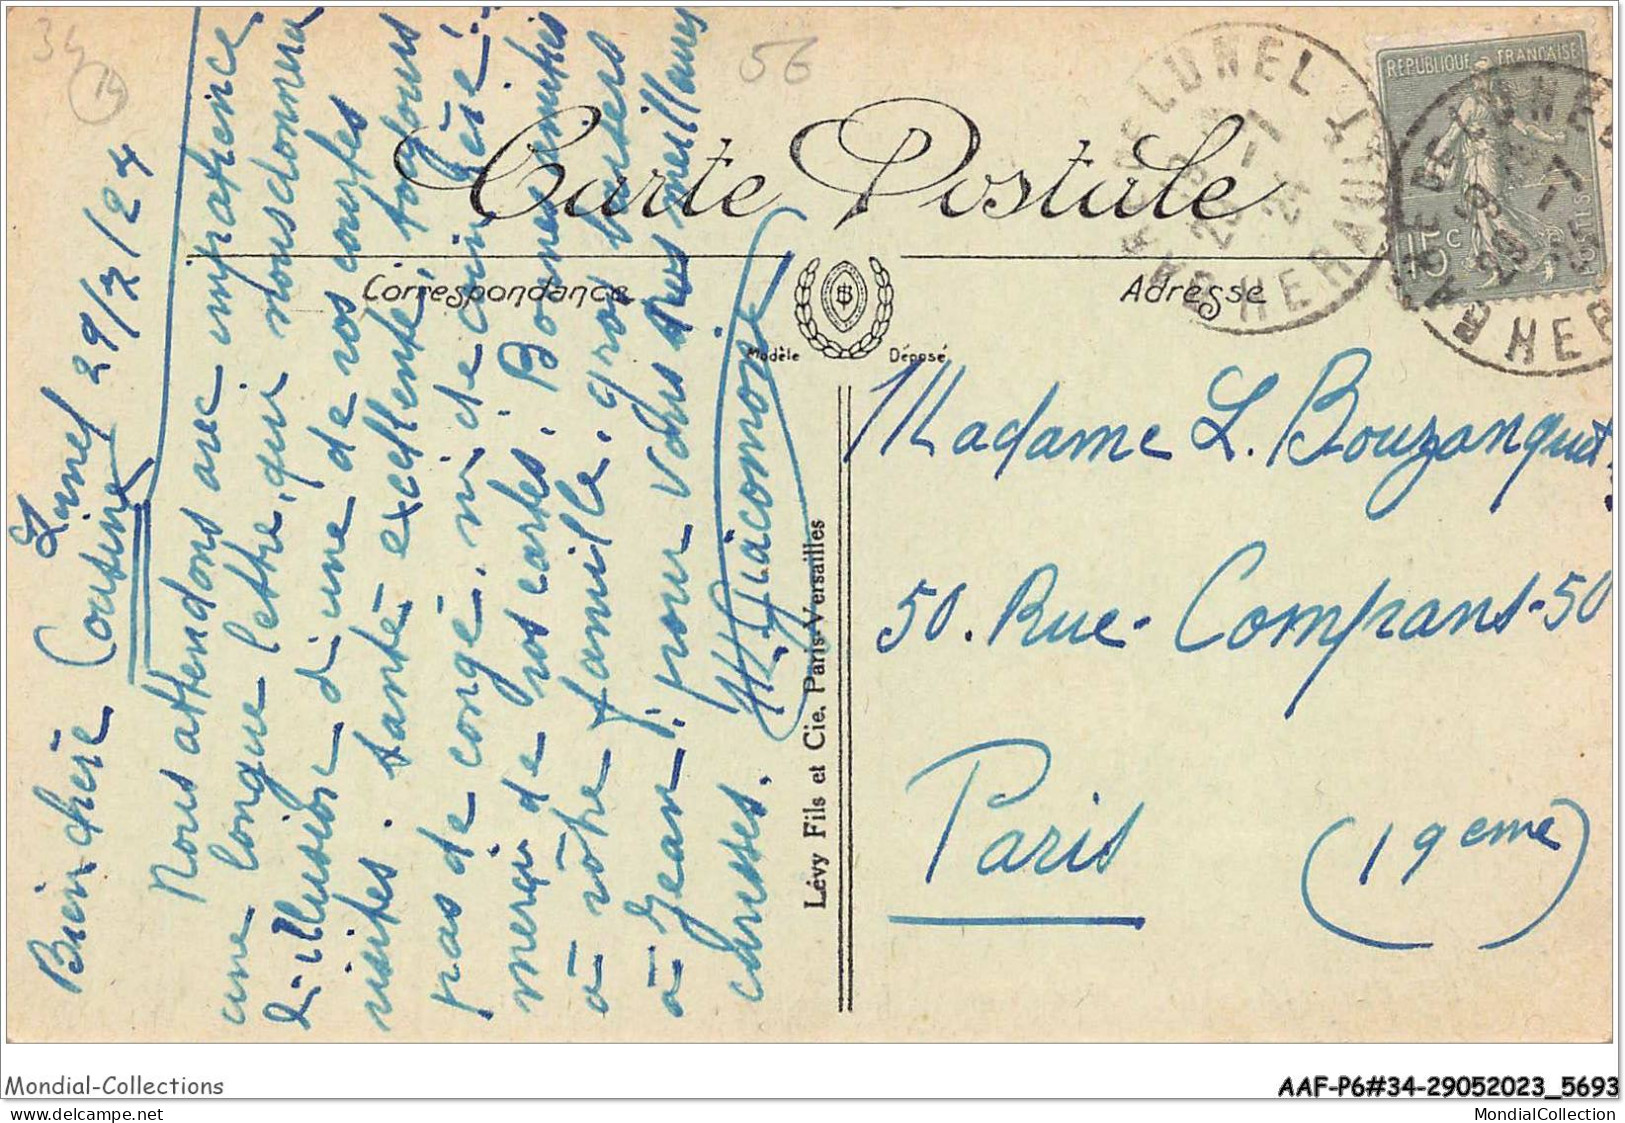 34
19
56
Carte Postale
Correspondance
Adresse
Modèle Déposé
REPUBLIQUE FRANÇAISE
15c
GARE DE LUNEL
HERAULT
Lunel 29/7/24
Bien chère Cousine
Nous attendons avec impatience
une longue lettre, qui nous donnera
l'illusion d'une de vos courtes
visites. Santé excellente, toujours
pas de congé, ni de
merçi de vos cartes. Bonnes
à vôtre famille. gros baisers
à Jean; pour vous nos meilleures
choses.
Giacomoni
Lévy Fils et Cie, Paris-Versailles
Madame L. Bouzanquet
50. Rue. Compans-50
Paris
(19eme)
Mondial-Collections
AAF-P6#34-29052023_5693
delcampe.net
MondialCollection